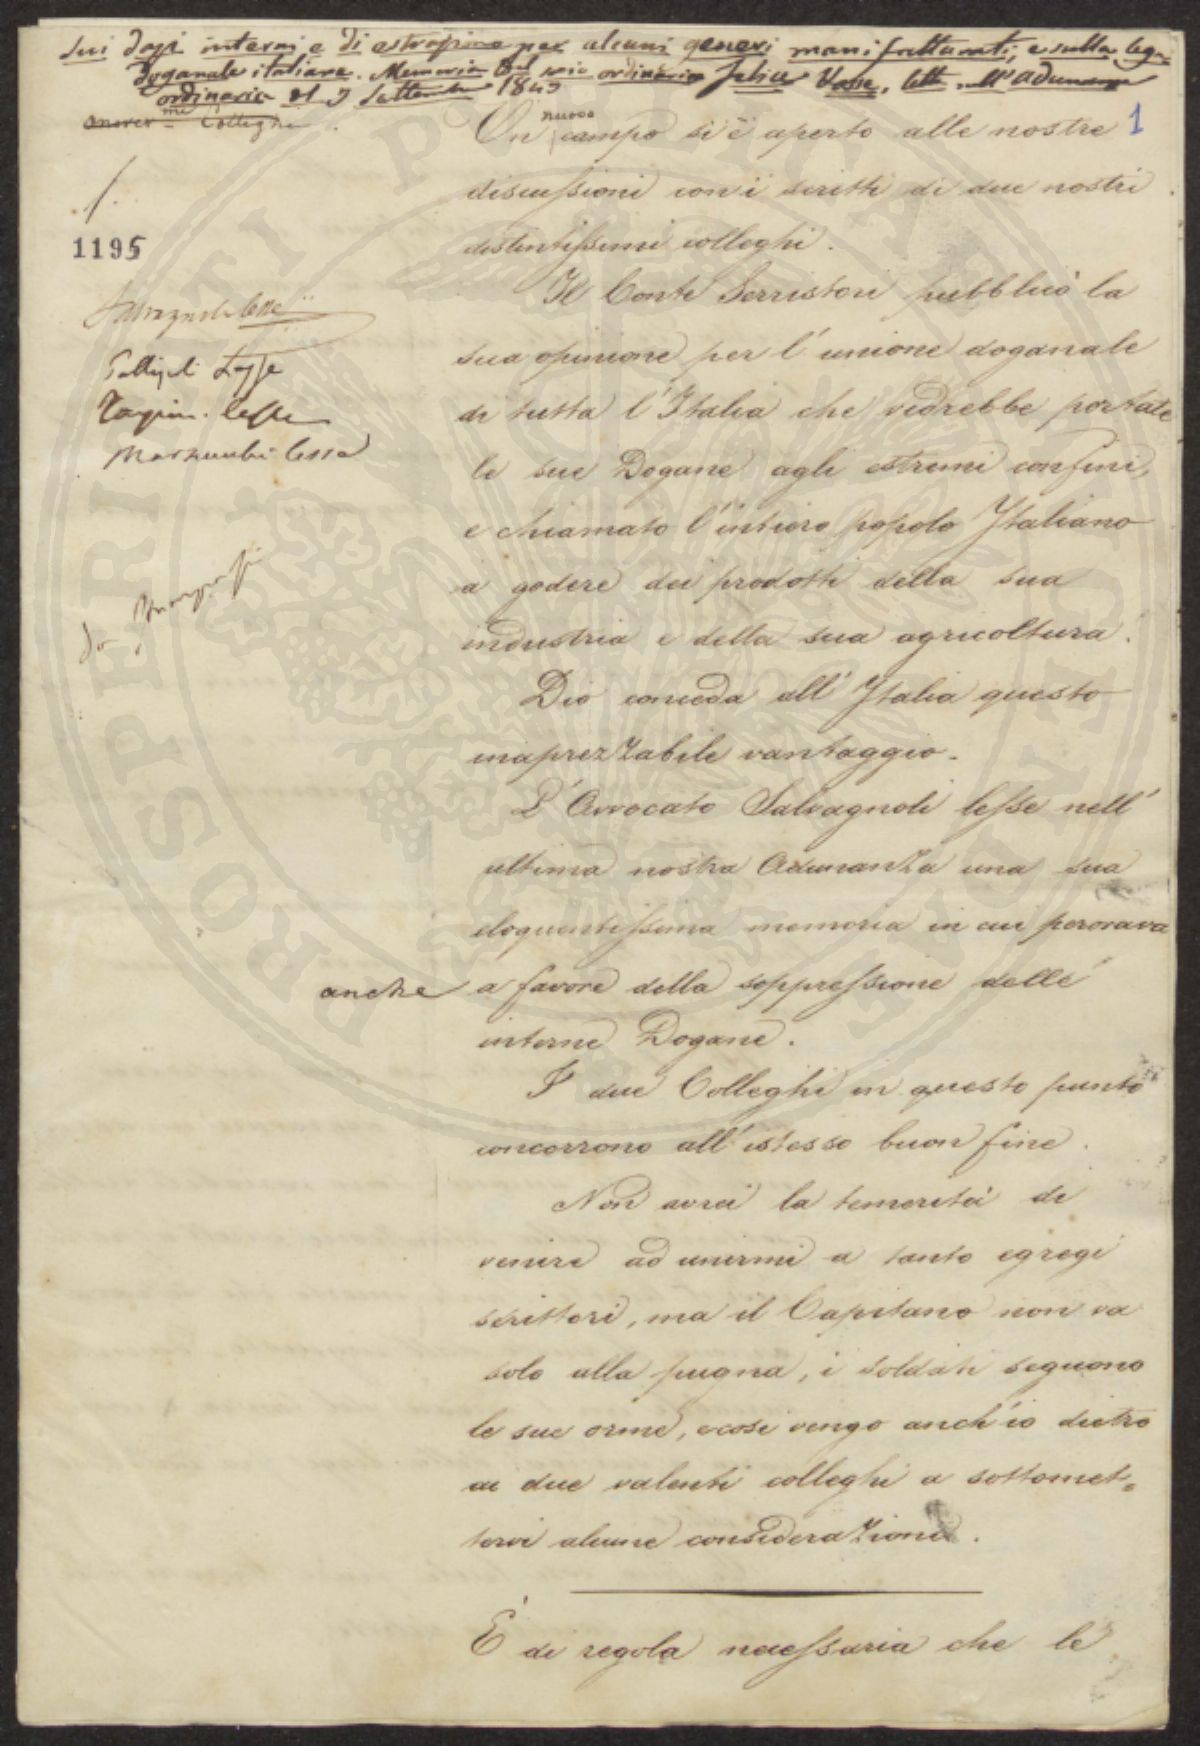 Sui dazi interni e di estrazione per alcuni generi manifatturati, e sulla lega
doganale italiana. Memoria del socio ordinario Felice Vasse, letta nell' Adunanza
ordinaria del 3 Settembre 1843
Colleghi
1
Un nuovo campo si è aperto alle nostre
discussioni con i scritti di due nostri
distintissimi colleghi.
1195
Il Conte Serristori pubblicò la
Salvagnoli lesse
sua opinione per l'unione doganale
lesse
di tutta l'Italia che vedrebbe portate
lesse
le sue Dogane agli estremi confini,
lesse
e chiamato l'intiero popolo Italiano
a godere dei prodotti della sua
industria e della sua agricoltura.
Dio conceda all'Italia questo
inaprezzabile vantaggio.
L'Avvocato Salvagnoli lesse nell'
ultima nostra Adunanza una sua
eloquentissima memoria in cui perorava
anche a favore della soppressione delle
interne Dogane.
I due Colleghi in questo punto
concorrono all'istesso buon fine.
Non avrei la temerità di
venire ad unirmi a tanto egregi
scrittori, ma il Capitano non va
solo alla pugna, i soldati seguono
le sue orme, e così vengo anch'io dietro
ai due valenti colleghi a sottomet=
tervi alcune considerazioni.
È di regola necessaria che le